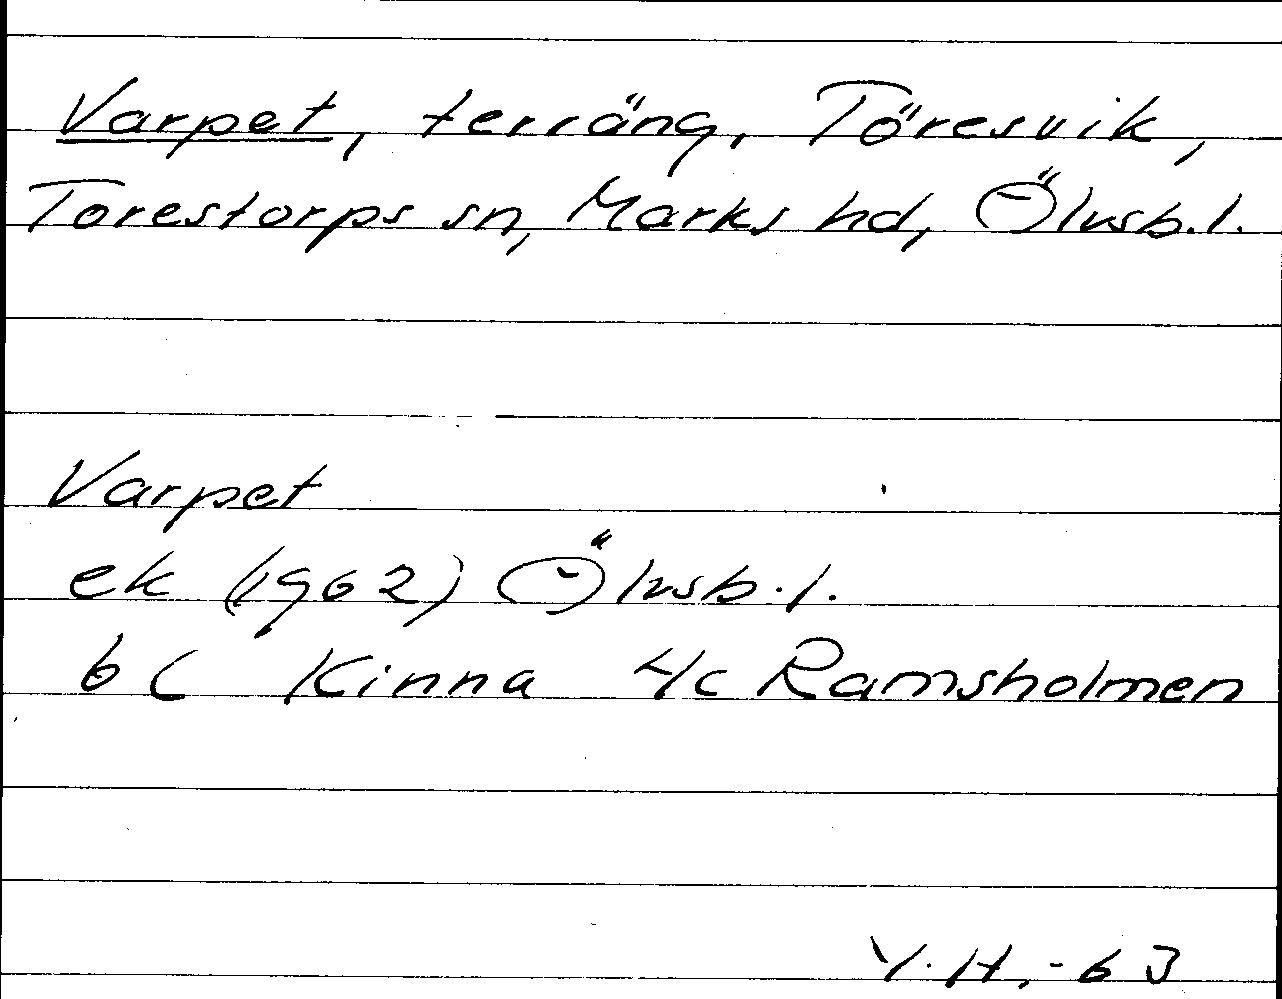 Varpet, terräng, Töresvik,
Torestorps sn, Marks hd, Ölvsb.l.
Varpet
ek (1962) Ölvsb.l.
6C Kinna 4c Ramsholmen
Y.H.-63